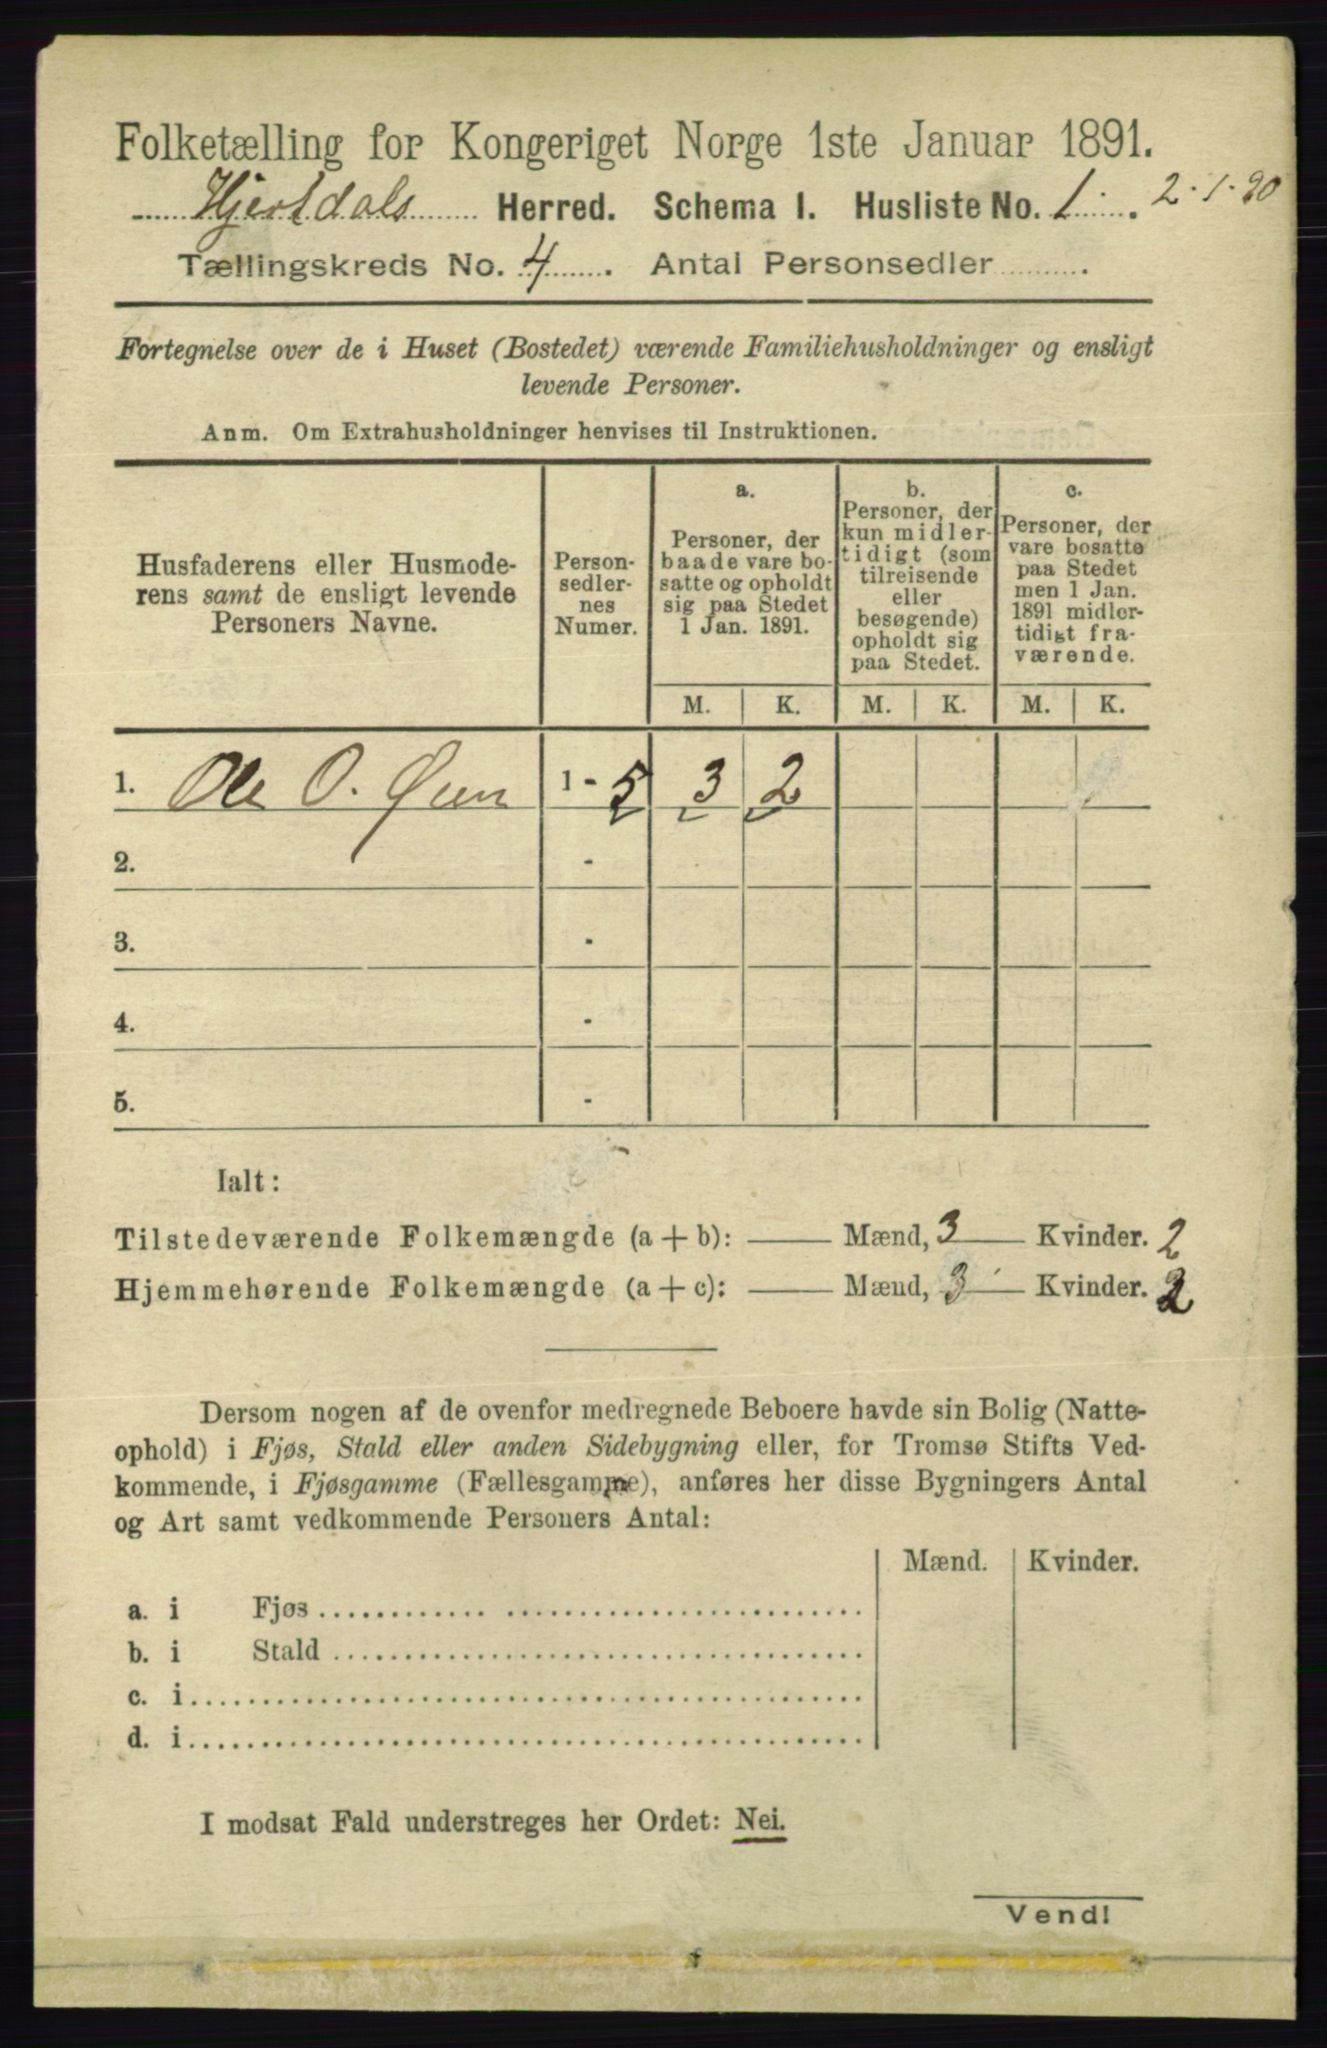 Folketælling for Kongeriget Norge 1ste Januar 1891.
Hjertdals Herred. Schema I. Husliste No. 1. 2-1-90
Tællingskreds No. 4. Antal Personsedler
Fortegnelse over de i Huset (Bostedet) værende Familiehusholdninger og ensligt
levende Personer.
Anm. Om Extrahusholdninger henvises til Instruktionen.
Husfaderens eller Husmode-
rens samt de ensligt levende
Personers Navne.
Person-
sedler-
nes
Numer.
a.
Personer, der
baade vare bo-
satte og opholdt
sig paa Stedet
1 Jan. 1891.
b.
Personer, der
kun midler-
tidigt (som
tilreisende
eller
besøgende)
opholdt sig
paa Stedet.
c.
Personer, der
vare bosatte
paa Stedet
men 1 Jan.
1891 midler-
tidigt fra-
værende.
M. K. M. K. M. K.
1. Ole O. 1 - 5 3 2
2. -
3. -
4. -
5. -
Ialt:
Tilstedeværende Folkemængde (a + b): Mænd, 3 Kvinder. 2
Hjemmehørende Folkemængde (a + c): Mænd, 3 Kvinder. 2
Dersom nogen af de ovenfor medregnede Beboere havde sin Bolig (Natte-
ophold) i Fjøs, Stald eller anden Sidebygning eller, for Tromsø Stifts Ved-
kommende, i Fjøsgamme (Fællesgamme), anføres her disse Bygningers Antal
og Art samt vedkommende Personers Antal:
Mænd. Kvinder.
a. i Fjøs
b. i Stald
c. i
d. i
I modsat Fald understreges her Ordet: Nei.
Vend!